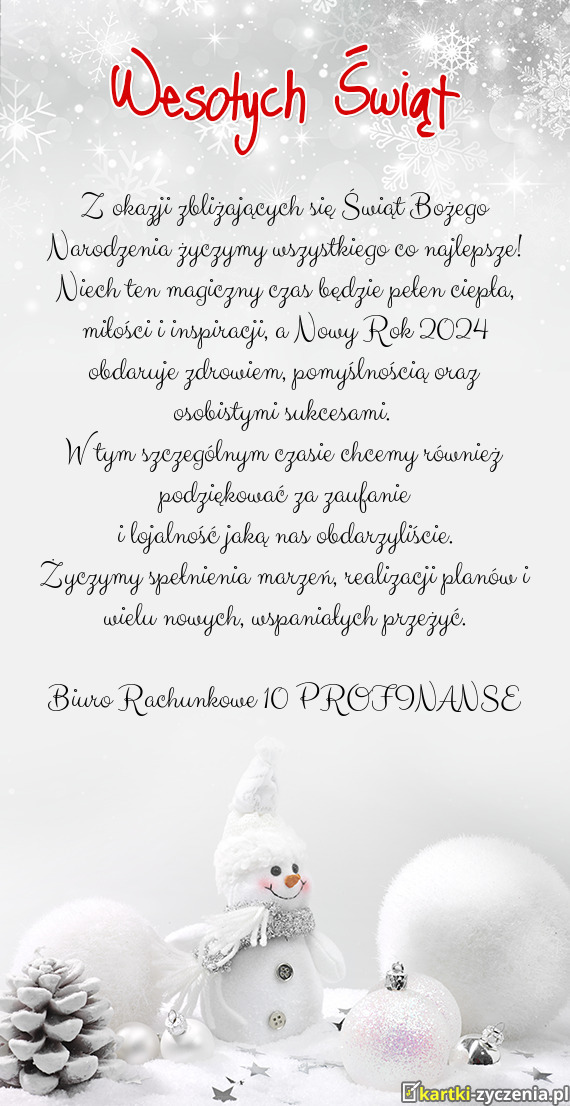 Wesołych Świąt
Z okazji zbliżających się Świąt Bożego
Narodzenia życzymy wszystkiego co najlepsze!
Niech ten magiczny czas będzie pełen ciepła,
miłości i inspiracji, a Nowy Rok 2024
obdaruje zdrowiem, pomyślnością oraz
osobistymi sukcesami.
W tym szczególnym czasie chcemy również
podziękować za zaufanie
i lojalność jaką nas obdarzyliście.
Życzymy spełnienia marzeń, realizacji planów i
wielu nowych, wspaniałych przeżyć.
Biuro Rachunkowe 10 PROFINANSE
kartki-zyczenia.pl